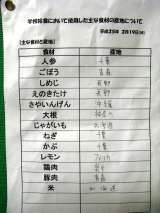 学校給食において使用した主な食材の産地について
平成25年 2月19日(火)
【主な食材と産地】
食材 産地
人参 千葉
ごぼう 青森
しめじ 長野
えのきたけ 長野
さやいんげん 沖縄
大根 神奈川
じゃがいも 北海道
ねぎ 千葉
かぶ 千葉
レモン アメリカ
鶏肉
豚もも
米 北海道